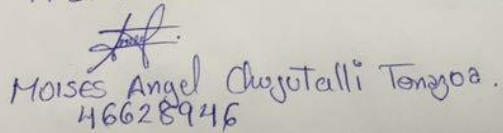 MOISES Angel Chujutalli Tenazoa.
46628946